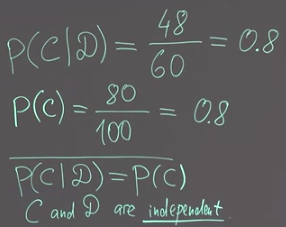 P(C|D) = 48/60 = 0.8
P(C) = 80/100 = 0.8
P(C|D) = P(C)
C and D are independent.